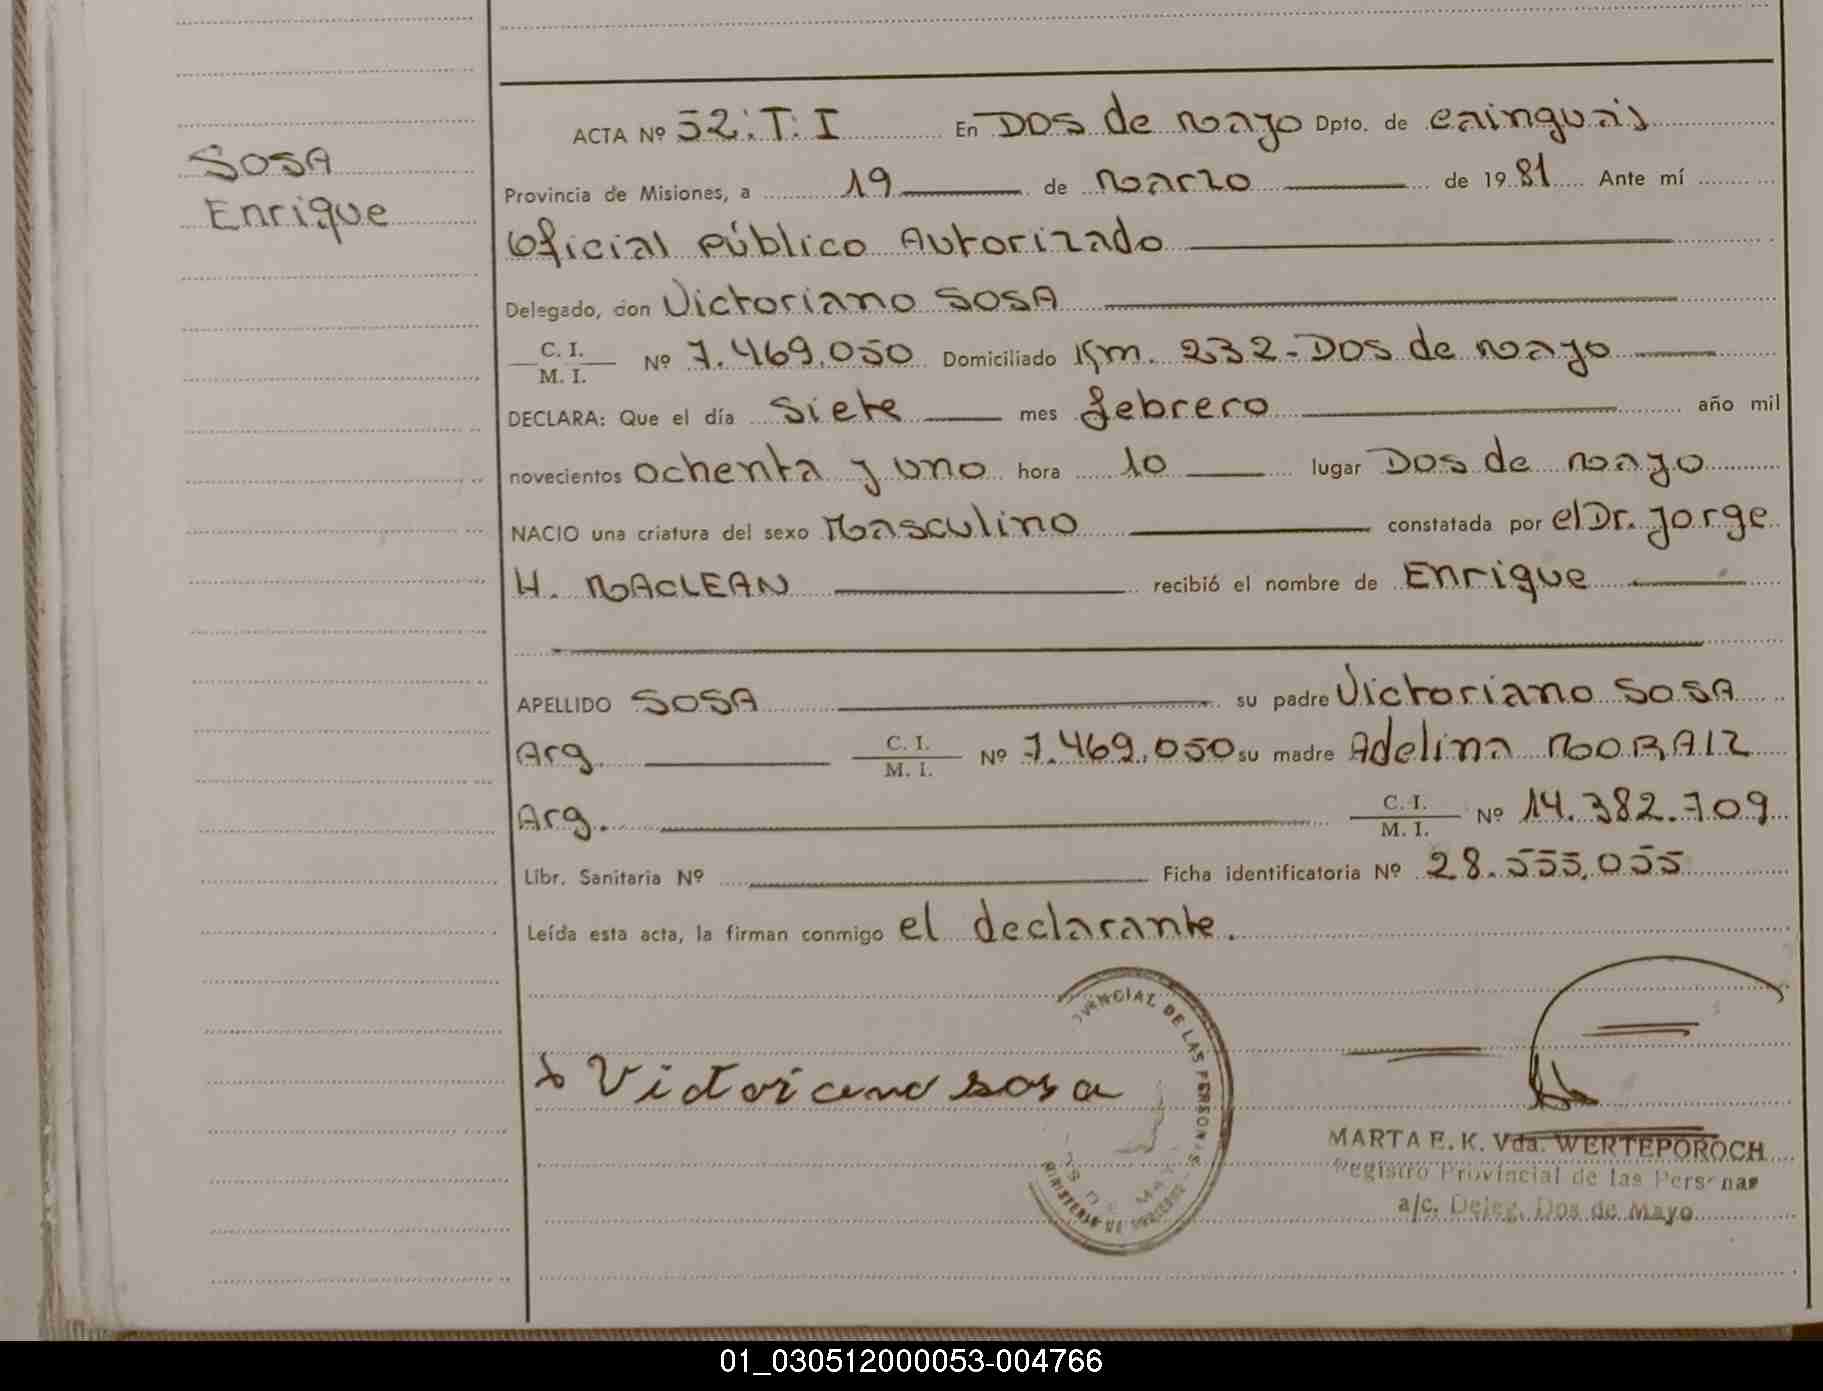 SOSA
Enrique
ACTA Nº 52: T: I En Dos de Mayo Dpto. de Cainguás
Provincia de Misiones, a 19 de Marzo de 1981 Ante mí
Oficial Público Autorizado
Delegado, don Victoriano SOSA
C. I.
M. I. Nº 7.469.050 Domiciliado Km. 232-Dos de Mayo
DECLARA: Que el día siete mes febrero año mil
novecientos ochenta y uno hora 10 lugar Dos de Mayo
NACIO una criatura del sexo Masculino constatada por el Dr. Jorge
H. MACLEAN recibió el nombre de Enrique
APELLIDO SOSA su padre Victoriano SOSA
Arg. C. I. M. I. Nº 7.469.050 su madre Adelina MORAIZ
Arg. C. I. M. I. Nº 14.382.709
Libr. Sanitaria Nº Ficha identificatoria Nº 28.555.055
Leída esta acta, la firman conmigo el declarante.
VINCIAL DE LAS PERSONAS
MINISTERIO DE
Victoriano sosa
MARTA E. K. Vda. WERTEPOROCH
Registro Provincial de las Personas
a/c. Deleg. Dos de Mayo
01_030512000053-004766